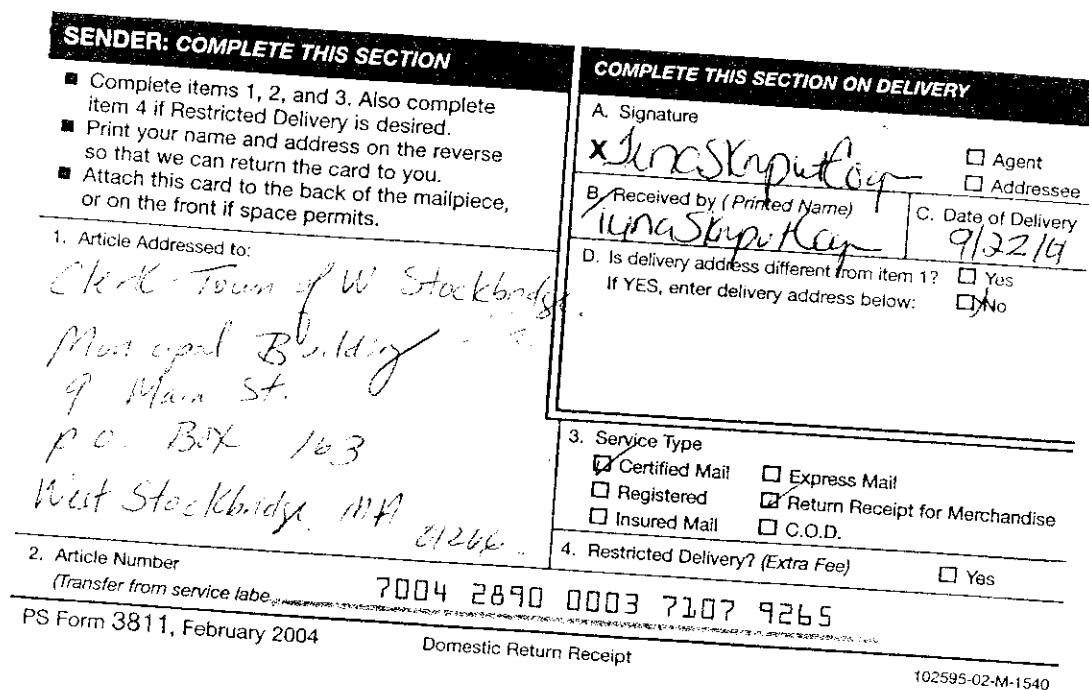 SENDER: COMPLETE THIS SECTION
■ Complete items 1, 2, and 3. Also complete
item 4 if Restricted Delivery is desired.
■ Print your name and address on the reverse
so that we can return the card to you.
■ Attach this card to the back of the mailpiece,
or on the front if space permits.
1. Article Addressed to:
Clerk - Town of W Stockbridge
Municipal Building
9 Main St.
P.O. Box 163
West Stockbridge MA
01266
2. Article Number
(Transfer from service labe
7004 2890 0003 7107 9265
PS Form 3811, February 2004
Domestic Return Receipt
102595-02-M-1540
COMPLETE THIS SECTION ON DELIVERY
A. Signature
X
☐ Agent
☐ Addressee
B. Received by (Printed Name)
C. Date of Delivery
D. Is delivery address different from item 1? ☐ Yes
If YES, enter delivery address below: ☐ No
3. Service Type
☑ Certified Mail ☐ Express Mail
☐ Registered ☑ Return Receipt for Merchandise
☐ Insured Mail ☐ C.O.D.
4. Restricted Delivery? (Extra Fee) ☐ Yes